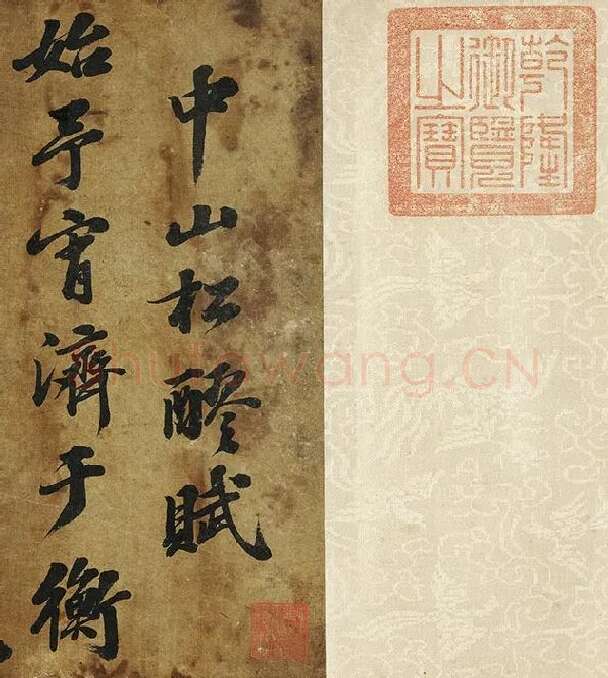 乾隆
御覽
之寶
中山松醪賦
始予宵濟于衡
shufawang.CN